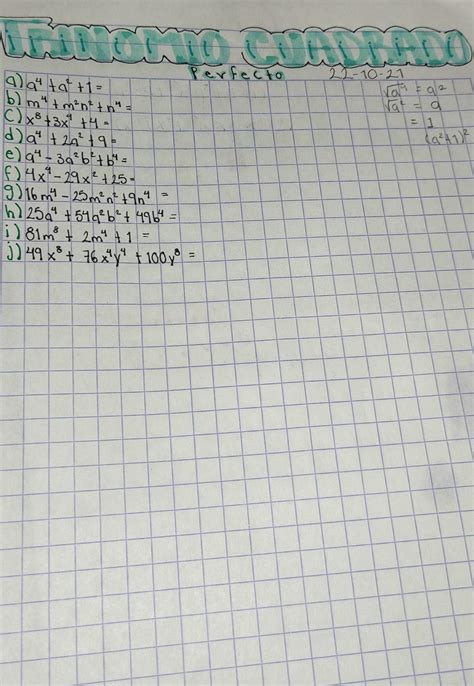 TRINOMIO CUADRADO
Perfecto 22-10-21
a) a⁴ + a² + 1 =
b) m⁴ + m²n² + n⁴ =
c) x⁸ + 3x⁴ + 4 =
d) a⁴ + 2a² + 9 =
e) a⁴ - 3a²b² + b⁴ =
f) 4x⁴ - 29x² + 25 =
g) 16m⁴ - 25m²n² + 9n⁴ =
h) 25a⁴ + 54a²b² + 49b⁴ =
i) 81m⁸ + 2m⁴ + 1 =
j) 49x⁸ + 76x⁴y⁴ + 100y⁸ =
√a⁴ = a²
√a² = a
= 1
(a²+1)²